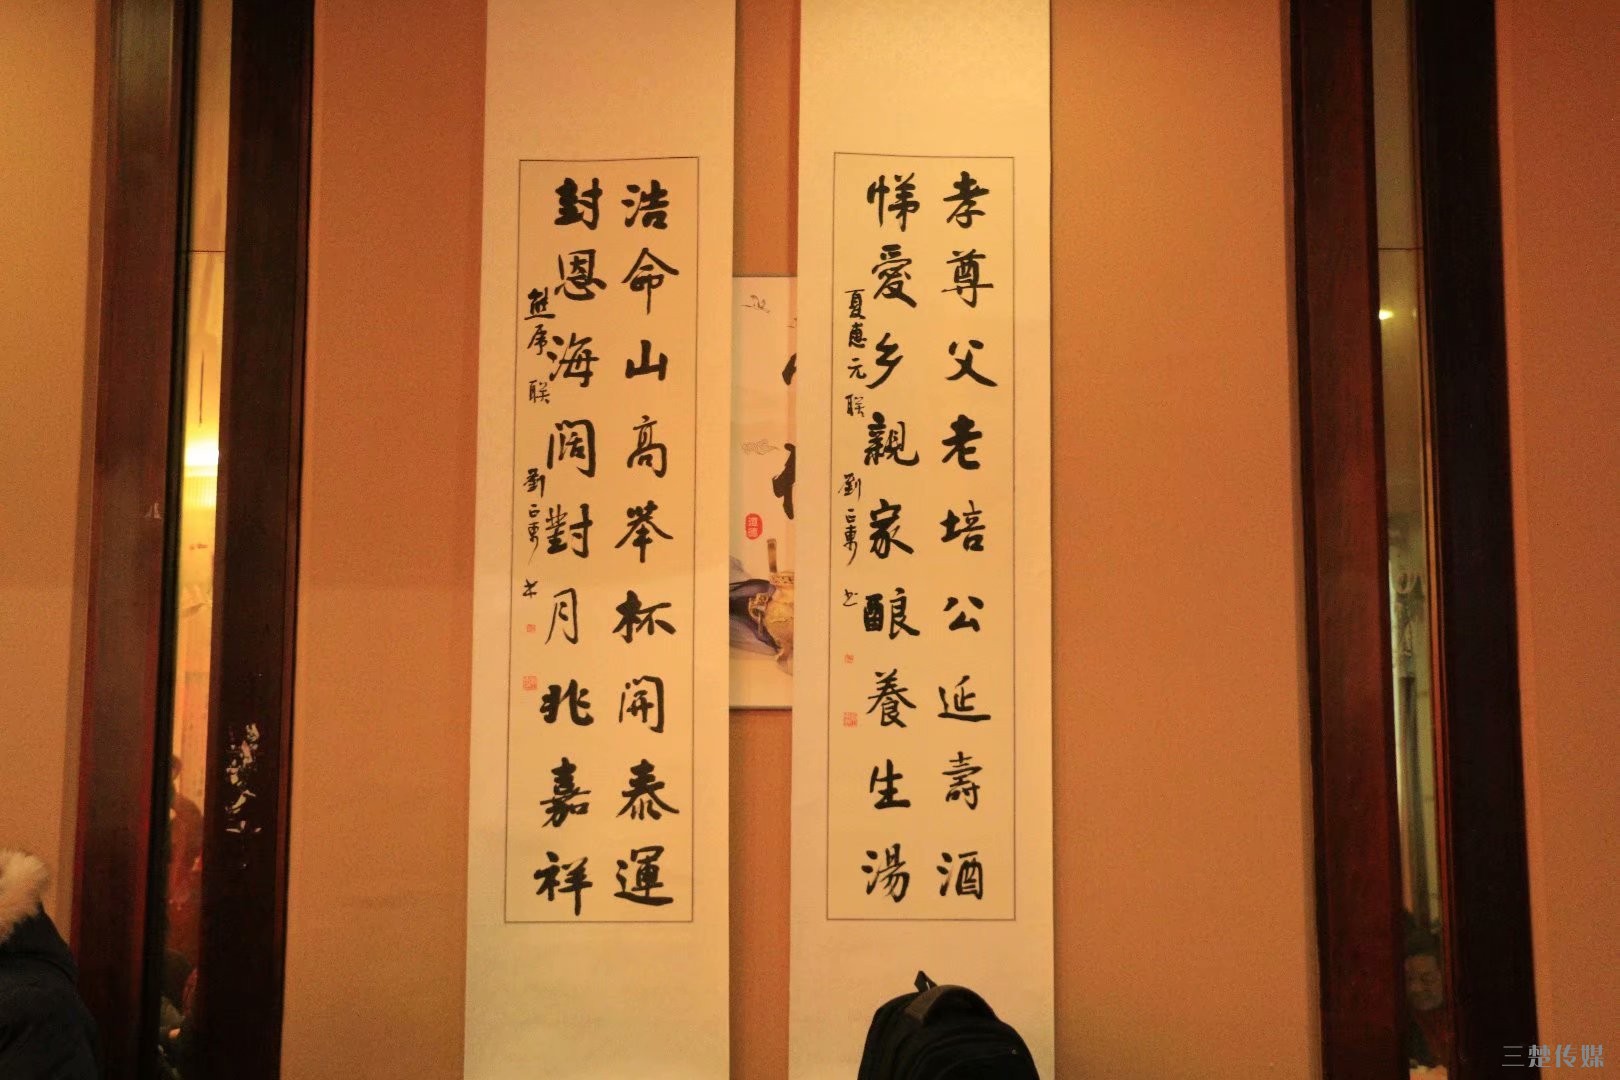 孝尊父老培公延壽酒
悌愛乡親家酿養生湯
夏惠元联 劉正東书
浩命山高举杯開泰運
封恩海阔對月兆嘉祥
熊虎联 劉正東书
三楚传媒